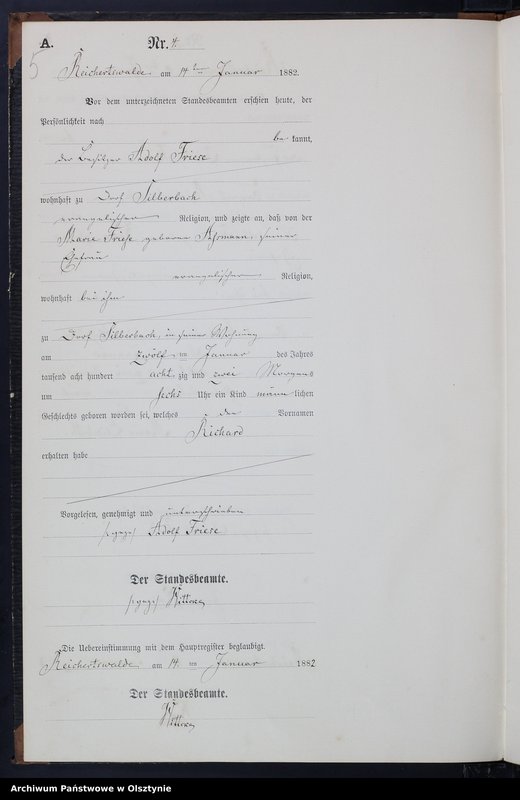 A. Nr. 4
5
Reichertswalde am 14ten Januar 1882.
Vor dem unterzeichneten Standesbeamten erschien heute, der
Persönlichkeit nach
be kannt,
der Besitzer Adolf Friese
wohnhaft zu Dorf Silberbach
evangelischer Religion, und zeigte an, daß von der
Marie Friese geborene seiner
Ehefrau
evangelischer Religion,
wohnhaft bei ihm
zu Dorf Silberbach, in seiner Wohnung
am zwölf ten Januar des Jahres
tausend acht hundert acht zig und zwei Morgens
um sechs Uhr ein Kind männ lichen
Geschlechts geboren worden sei, welches den Vornamen
Richard
erhalten habe
Vorgelesen, genehmigt und unterschrieben
(:gez:) Adolf Friese
Der Standesbeamte.
(:gez:)
Die Uebereinstimmung mit dem Hauptregister beglaubigt.
Reichertswalde am 14. ten Januar 1882
Der Standesbeamte.
Archiwum Państwowe w Olsztynie